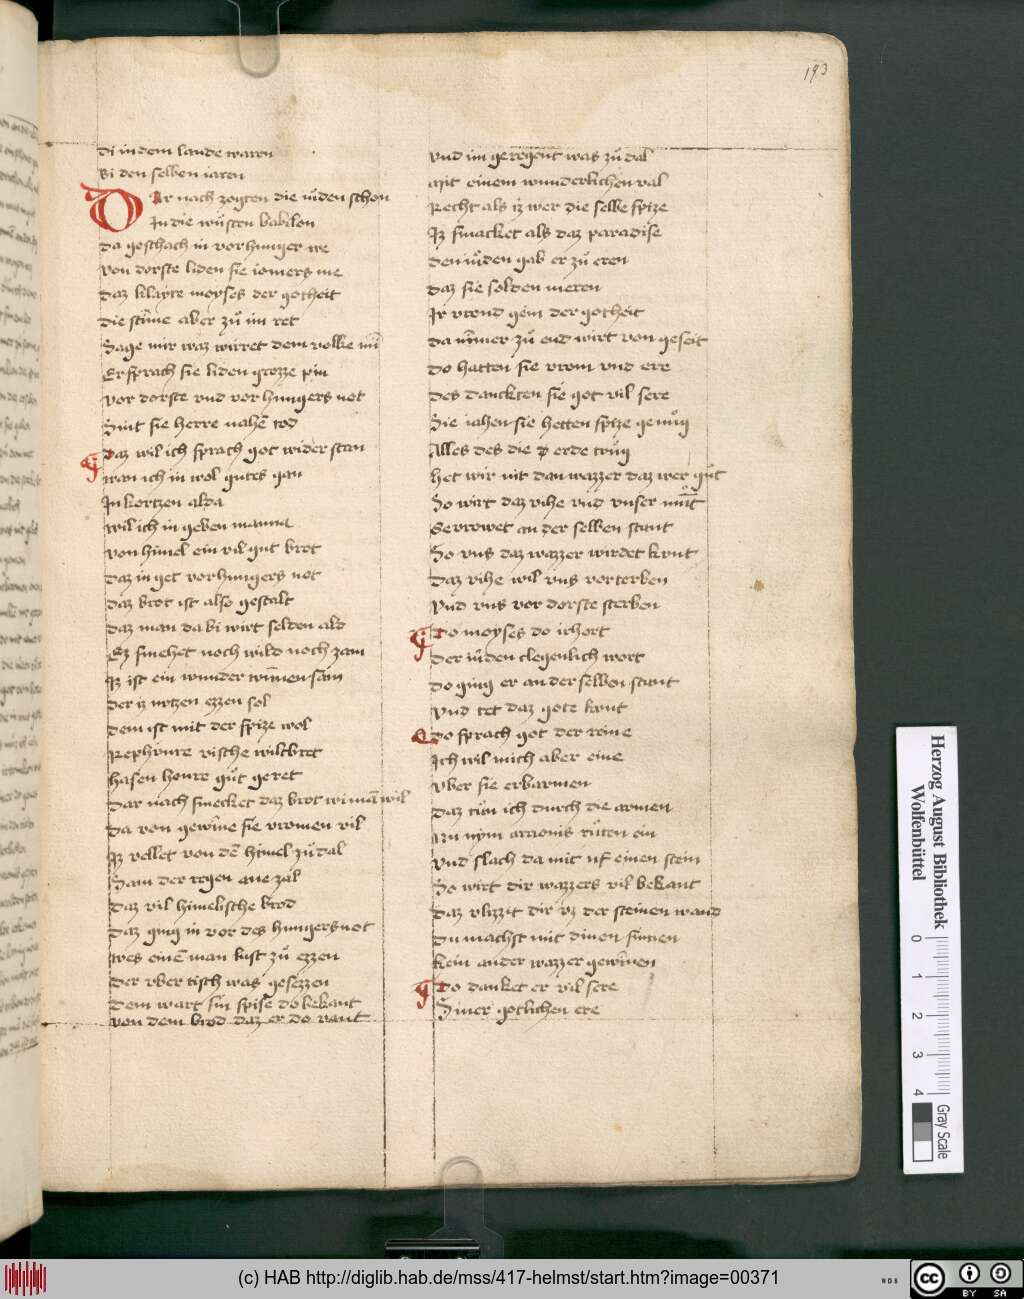 193
Di in dem lande waren
Bi den selben iaren
Dar nach zogten die iuͦden schon
In die wuͤsten babilon
Da geschach in vor hunger we
Von dorste liden sie iomers me
Daz klayte moyses der gotheit
Die stim̄e aber zuͦ im ret
Sage mir waz wirret dem volke min
Er sprach sie liden grozze pin
Vor dorste vnd vor hungers not
Sint sie herre nahe tod
Daz wil ich sprach got wider stan
wan ich in wol gutes gan
In kortzen alda
wil ich in geben manna
von himel ein vil gut brot
Daz in get vor hungers not
Daz brot ist also gestalt
Daz man da bi wirt selden alt
Ez smehet noch wild noch zam
Iz ist ein wunder
Der iz nutzen ezzen sol
Dem ist mit der spize wol
Rephuͤnre vische wiltbret
Hasen honre guͦt geret
Dar nach smecket daz brot wi man wil
Da von gewin̄e sie vromen vil
Iz vellet von dē himel zuͦ dal
Sam der regen ane zal
Daz vil himelische brod
Daz ging in vor des hungers not
wes einē man lust zuͦ ezzen
Der vber tisch was gesezzen
Dem wart sin spise do bekant
von dem brod daz er do vant
vnd im geregent was zuͦ dal
Mit einem wunderlichen val
Recht als iz wer die selbe spize
Iz smacket als daz paradise
Den iuͦden gab er zuͦ eren
Daz sie solden meren
Ir vrond gein der gotheit
Da nim̄er zuͦ end wirt von geseit
Do hatten sie vrom vnd ere
Des danckten sie got vil sere
Sie iahen sie hetten spize genuͦg
Alles des die erde truͦg
Het wir nit dan wazzer daz wer guͦt
So wirt daz vihe vnd vnser
Gevrowet an der selben stunt
So vns daz wazzer wirdet kunt
Daz vihe wil vns vorterben
Vnd vns vor dorste sterben
Do moyses do irhort
Der iuͦden clegenlich wort
Do ging er an der selben stunt
Vnd tet daz gote kunt
Do sprach got der reine
Ich wil mich aber eine
Vber sie erbarmen
Daz tuͦn ich durch die armen
Nu nym aronis ruͦten ein
Vnd slach da mit vf einen stein
So wirt dir wazzers vil bekant
Daz vlizzit dir vz der steinen wand
Du machst mit dinen sinnen
Kein ander wazzer gewin̄en
Do danket er vil sere
Siner gotlichen ere
Herzog August Bibliothek
Wolfenbüttel
0 1 2 3 4
Gray Scale
(c) HAB http://diglib.hab.de/mss/417-helmst/start.htm?image=00371
WDB
cc
BY SA